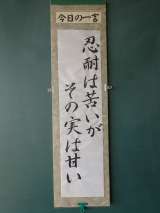 今日の一言
忍耐は苦いが
その実は甘い